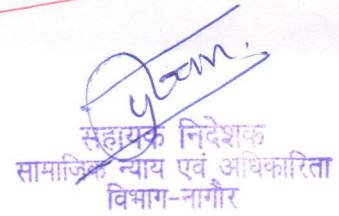 सहायक निदेशक
सामाजिक न्याय एवं अधिकारिता
विभाग-नागौर